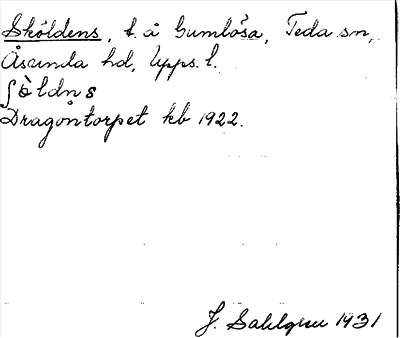 Sköldens, t. å Gumlösa, Teda sn,
Åsunda hd, Upps. l.
ʃö̀ldn s
Dragontorpet kb 1922.
J. Sahlgren 1931